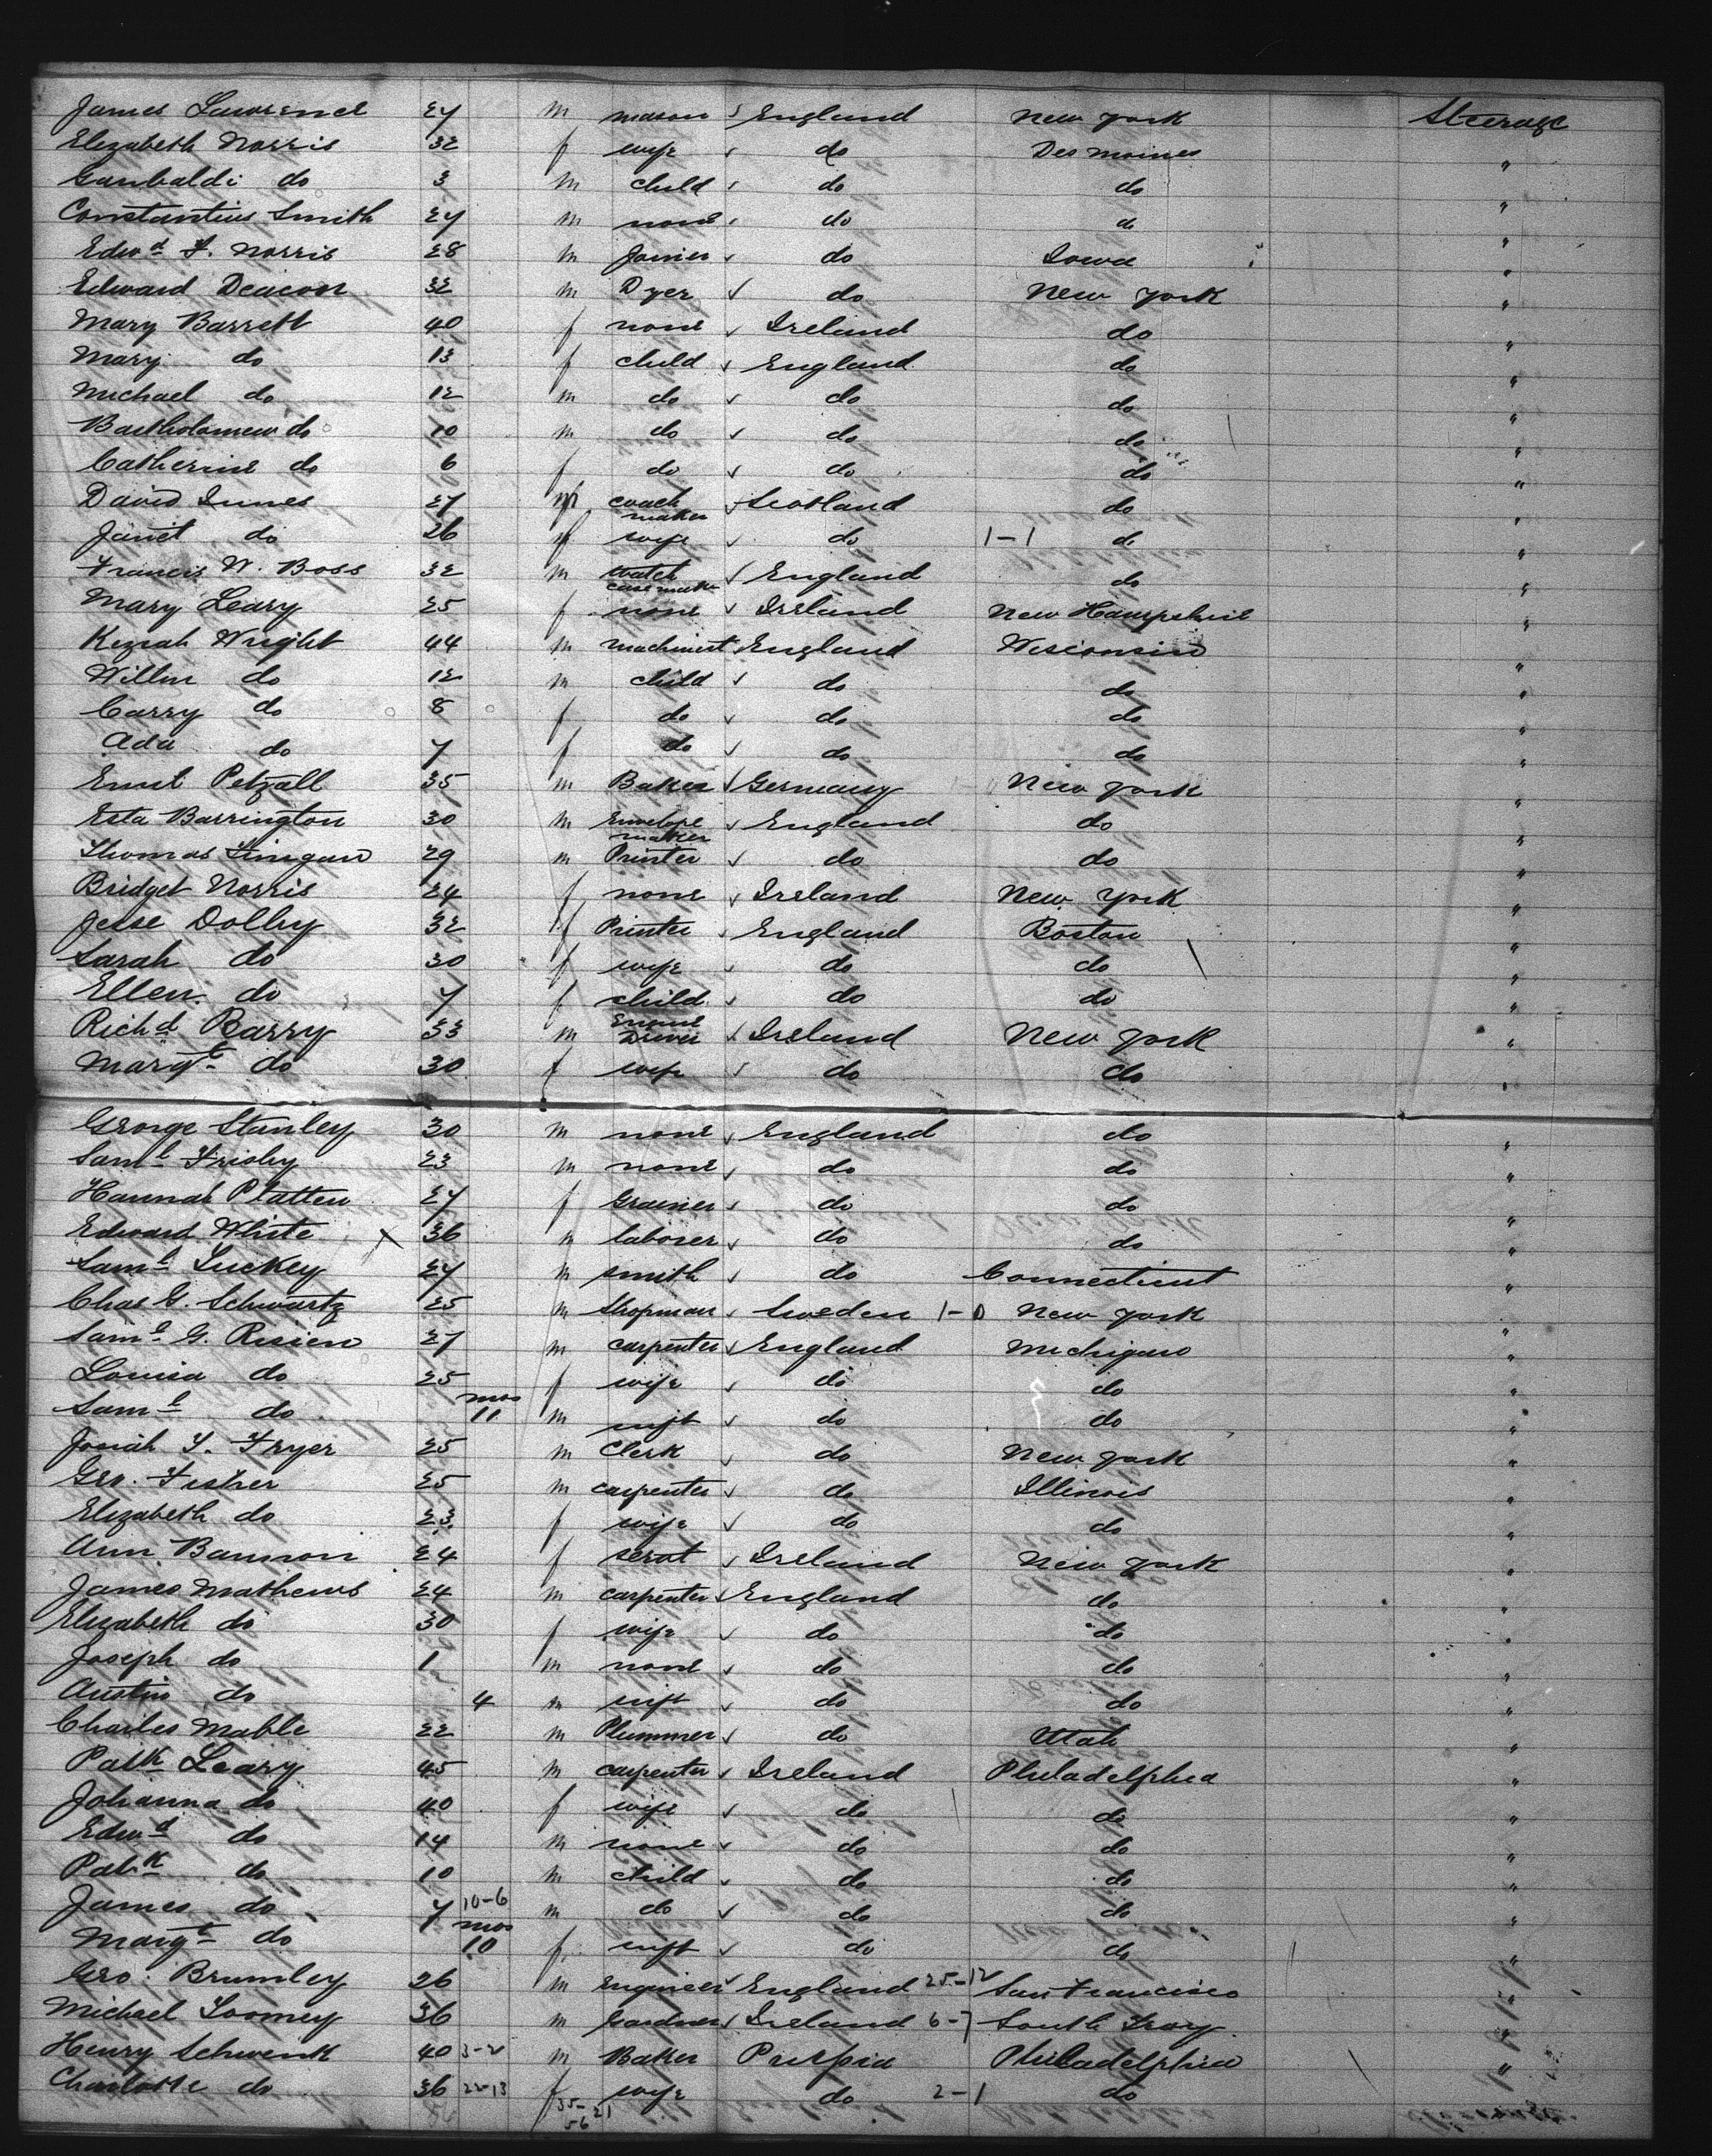 James Lawrence 27 m mason England New York Steerage
Elizabeth Norris 32 f wife do Des moines "
Garibaldi do 3 m child do do "
Constantius Smith 27 m none do do "
Edwd F. Norris 28 m Joiner do Iowa "
Edward Deacon 32 m Dyer do New York "
Mary Barrett 40 f none Ireland do "
Mary do 13 f child England do "
Michael do 12 m do do do "
Bartholomew do 10 m do do do "
Catherine do 6 f do do do "
David Innes 27 m coach maker Scotland do "
Janet do 26 f wife do 1-1 do "
Francis W. Boss 32 m watch case maker England do "
Mary Leary 25 f none Ireland New Hampshire "
Keziah Wright 44 m machinist England Wisconsin "
do 12 m child do do "
Carry do 8 f do do do "
Ada do 7 f do do do "
Petzall 35 m Baker Germany New York "
Barrington 30 m Envelope maker England do "
Thomas Finigan 29 m Printer do do "
Bridget Norris 24 f none Ireland New York "
Jesse Dolby 32 f Printer England Boston "
Sarah do 30 f wife do do "
Ellen do 7 f child do do "
Richd Barry 33 m Engine Driver Ireland New York "
Margt do 30 f wife do do "
George Stanley 30 m none England do "
Saml Frisby 23 m none do do "
Hannah Platten 27 f do do "
Edward White x 36 m laborer do do "
Saml Luckey 27 m smith do Connecticut "
Chas G. Schwartz 25 m Shopman Sweden 1-0 New York "
Saml G. Risien 27 m carpenter England Michigan "
Louisa do 25 f wife do do "
Saml do mos 11 m inft do do "
Josiah Fryer 25 m Clerk do New York "
Geo. Fisher 25 m carpenter do Illinois "
Elizabeth do 23 f wife do do "
Ann Bannon 24 f servt Ireland New York "
James Mathews 24 m carpenter England do "
Elizabeth do 30 f wife do do "
Joseph do 1 m none do do "
Austin do 4 m inft do do "
Charles Mable 22 m Plummer do Utah "
Patk Leary 45 m carpenter Ireland Philadelphia "
Johanna do 40 f wife do do "
Edwd do 14 m none do do "
Patk do 10 m child do do "
James do 7 10-6 m do do do "
Margt do mos 10 f inft do do "
Geo. Brumley 26 m Engineer England 25-12 San Francisco "
Michael Toomey 36 m Gardner Ireland 6-7 South Troy "
Henry Schwenk 40 3-2 m Baker Prussia Philadelphia "
Charlotte do 36 22-13 f wife do 2-1 do
35-21
56